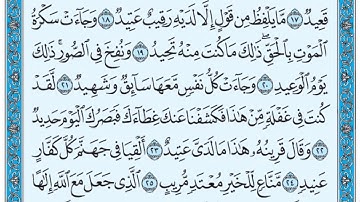 قَعِيدٌ ﴿١٧﴾ مَّا يَلْفِظُ مِن قَوْلٍ إِلَّا لَدَيْهِ رَقِيبٌ عَتِيدٌ ﴿١٨﴾ وَجَآءَتْ سَكْرَةُ
الْمَوْتِ بِالْحَقِّ ۖ ذَٰلِكَ مَا كُنتَ مِنْهُ تَحِيدُ ﴿١٩﴾ وَنُفِخَ فِي الصُّورِ ۚ ذَٰلِكَ
يَوْمُ الْوَعِيدِ ﴿٢٠﴾ وَجَآءَتْ كُلُّ نَفْسٍ مَّعَهَا سَآئِقٌ وَشَهِيدٌ ﴿٢١﴾ لَّقَدْ
كُنتَ فِي غَفْلَةٍ مِّنْ هَٰذَا فَكَشَفْنَا عَنكَ غِطَآءَكَ فَبَصَرُكَ الْيَوْمَ حَدِيدٌ
﴿٢٢﴾ وَقَالَ قَرِينُهُ هَٰذَا مَا لَدَيَّ عَتِيدٌ ﴿٢٣﴾ أَلْقِيَا فِي جَهَنَّمَ كُلَّ كَفَّارٍ
عَنِيدٍ ﴿٢٤﴾ مَّنَّاعٍ لِّلْخَيْرِ مُعْتَدٍ مُّرِيبٍ ﴿٢٥﴾ الَّذِي جَعَلَ مَعَ اللَّهِ إِلَٰهًا